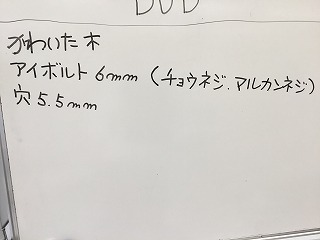 かわいた木
アイボルト 6mm (チョウネジ.マルカンネジ)
穴 5.5mm